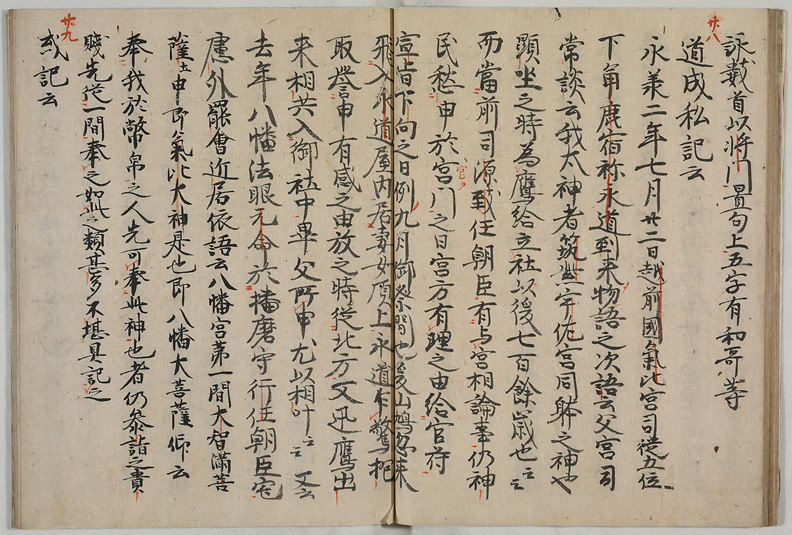 廿八
詠載首以将門置句上五字有和哥等
道成私記云
永承二年七月廿二日越前國氣比宮司従五位
下角鹿宿祢永道到来物語之次語云父宮司
常談云我大神者筑紫宇佐宮同躰之神也
顕坐之時為鷹給立社以後七百餘歳也云々
而當前司源 任朝臣有与宮相論事仍神
民愁申於宮門之日宮方有理之由給官苻
官
宣旨下向之日例九月御祭間也爰山鳩忽来
飛入永道屋内居妻女頂上永道乍驚抱
取誉申有感之由放之時従北方又迅鷹出
来相共入御社中畢父所申尤以相叶云々又云
去年八幡法眼元命於播磨守行任朝臣宅
慮外罷會近居依語云八幡宮第一間大智満菩
薩ト申即氣比大神是也即八幡大菩薩仰云
奉我於幣帛之人先可奉此神也者仍参詣之貴
賤先従一間奉之如此之類甚多不堪具記之
廿九
或記云